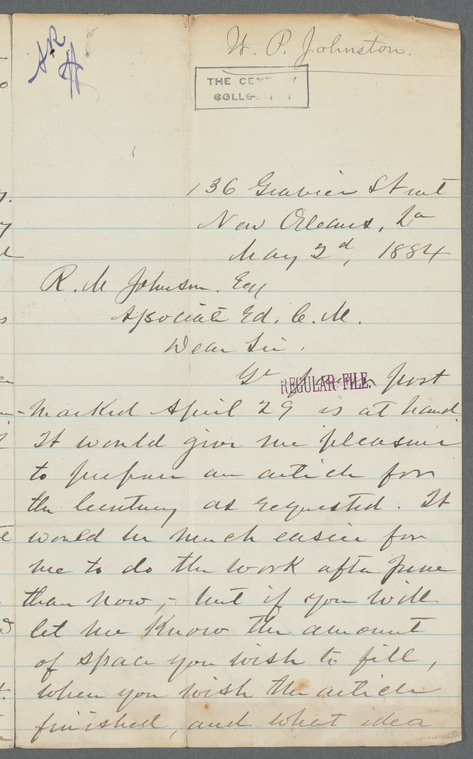 W. P. Johnston.
THE CENTURY
COLLE
136 Gravier Street
New Orleans, La
May 2d, 1884
R. M Johnson. Esq
Associate Ed. C. M.
Dear Sir.
REGULAR FILE.
Yr favor post
marked April 29 is at hand
It would give me pleasure
to prepare an article for
the Century as requested. It
would be much easier for
me to do the work after June
than now;- but if you will
let me know the amount
of space you wish to fill,
when you wish the article
finished, and what idea